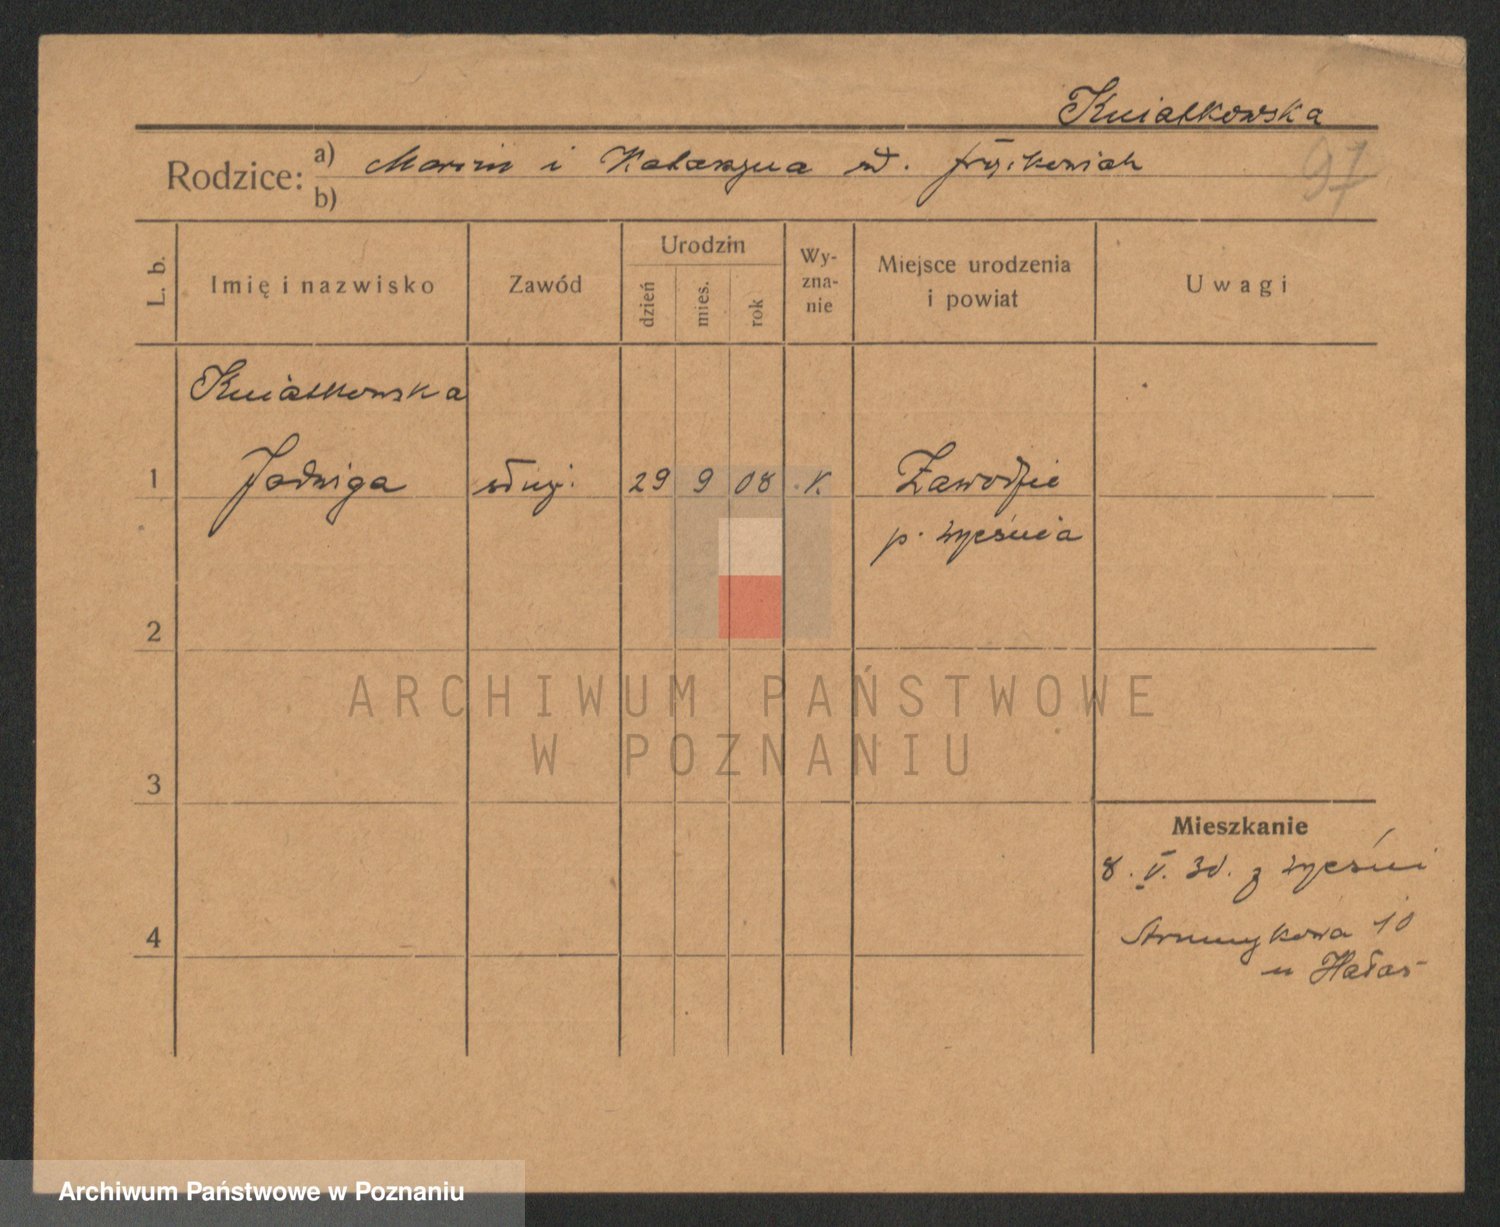 Kwiatkowska
Rodzice: a) Marcin i Katarzyna
b)
97
L. b.
Imię i nazwisko
Zawód
Urodzin
dzień
mies.
rok
Wy-
zna-
nie
Miejsce urodzenia
i powiat
Uwagi
Kwiatkowska
1 Jadwiga 29 9 08 Zawodzie
p. Września
2
3
4
Mieszkanie
8. V. z Wrześni
10
u Hałas
ARCHIWUM PAŃSTWOWE
W POZNANIU
Archiwum Państwowe w Poznaniu